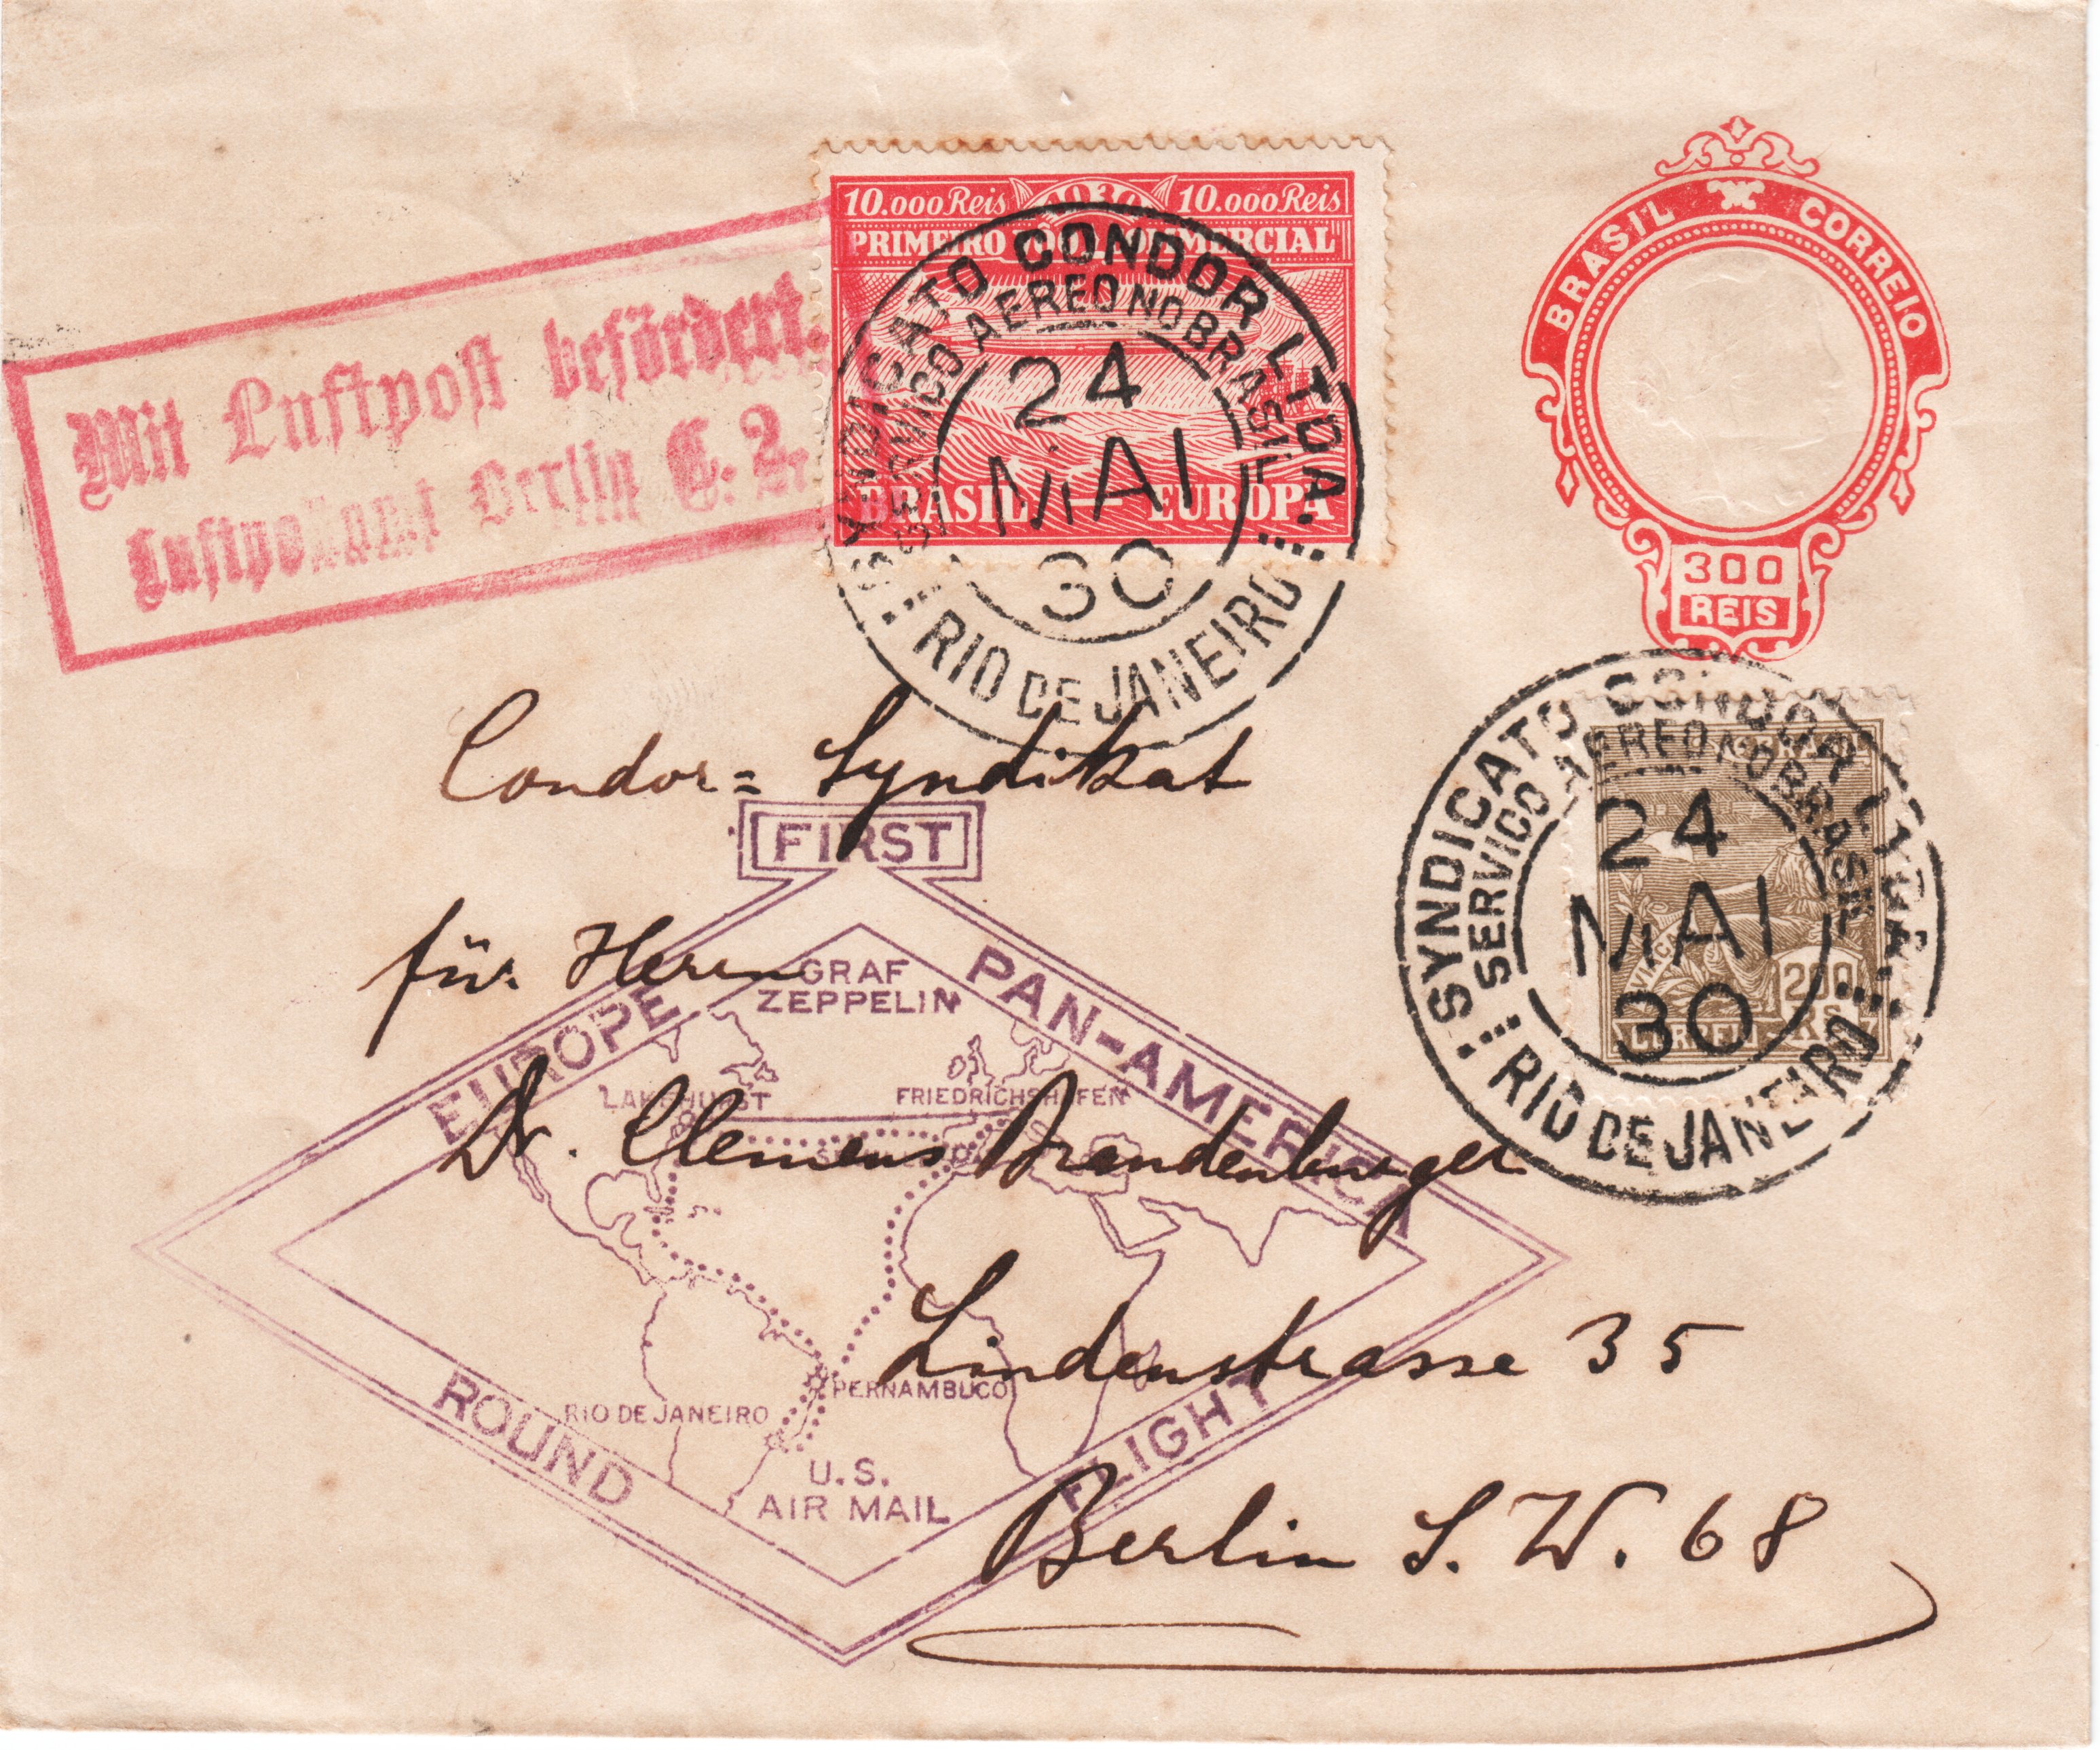 10.000 Reis 1930 10.000 Reis
PRIMEIRO VÔO COMMERCIAL
BRASIL — EUROPA
BRASIL CORREIO
300
REIS
Mit Luftpost befördert.
Luftpostamt Berlin C. 2.
SYNDICATO CONDOR LTDA.
SERVICO AEREO NO BRASIL
24
MAI
30
RIO DE JANEIRO
SYNDICATO CONDOR LTDA.
SERVICO AEREO NO BRASIL
24
MAI
30
RIO DE JANEIRO
200
RS
CORREIO
Condor = Syndikat
für Herrn
Dr. Clemens Brandenburger
Lindenstrasse 35
Berlin S. W. 68
FIRST
EUROPE PAN-AMERICA
GRAF
ZEPPELIN
LAKEHURST FRIEDRICHSHAFEN
PERNAMBUCO
RIO DE JANEIRO
U.S.
AIR MAIL
ROUND FLIGHT